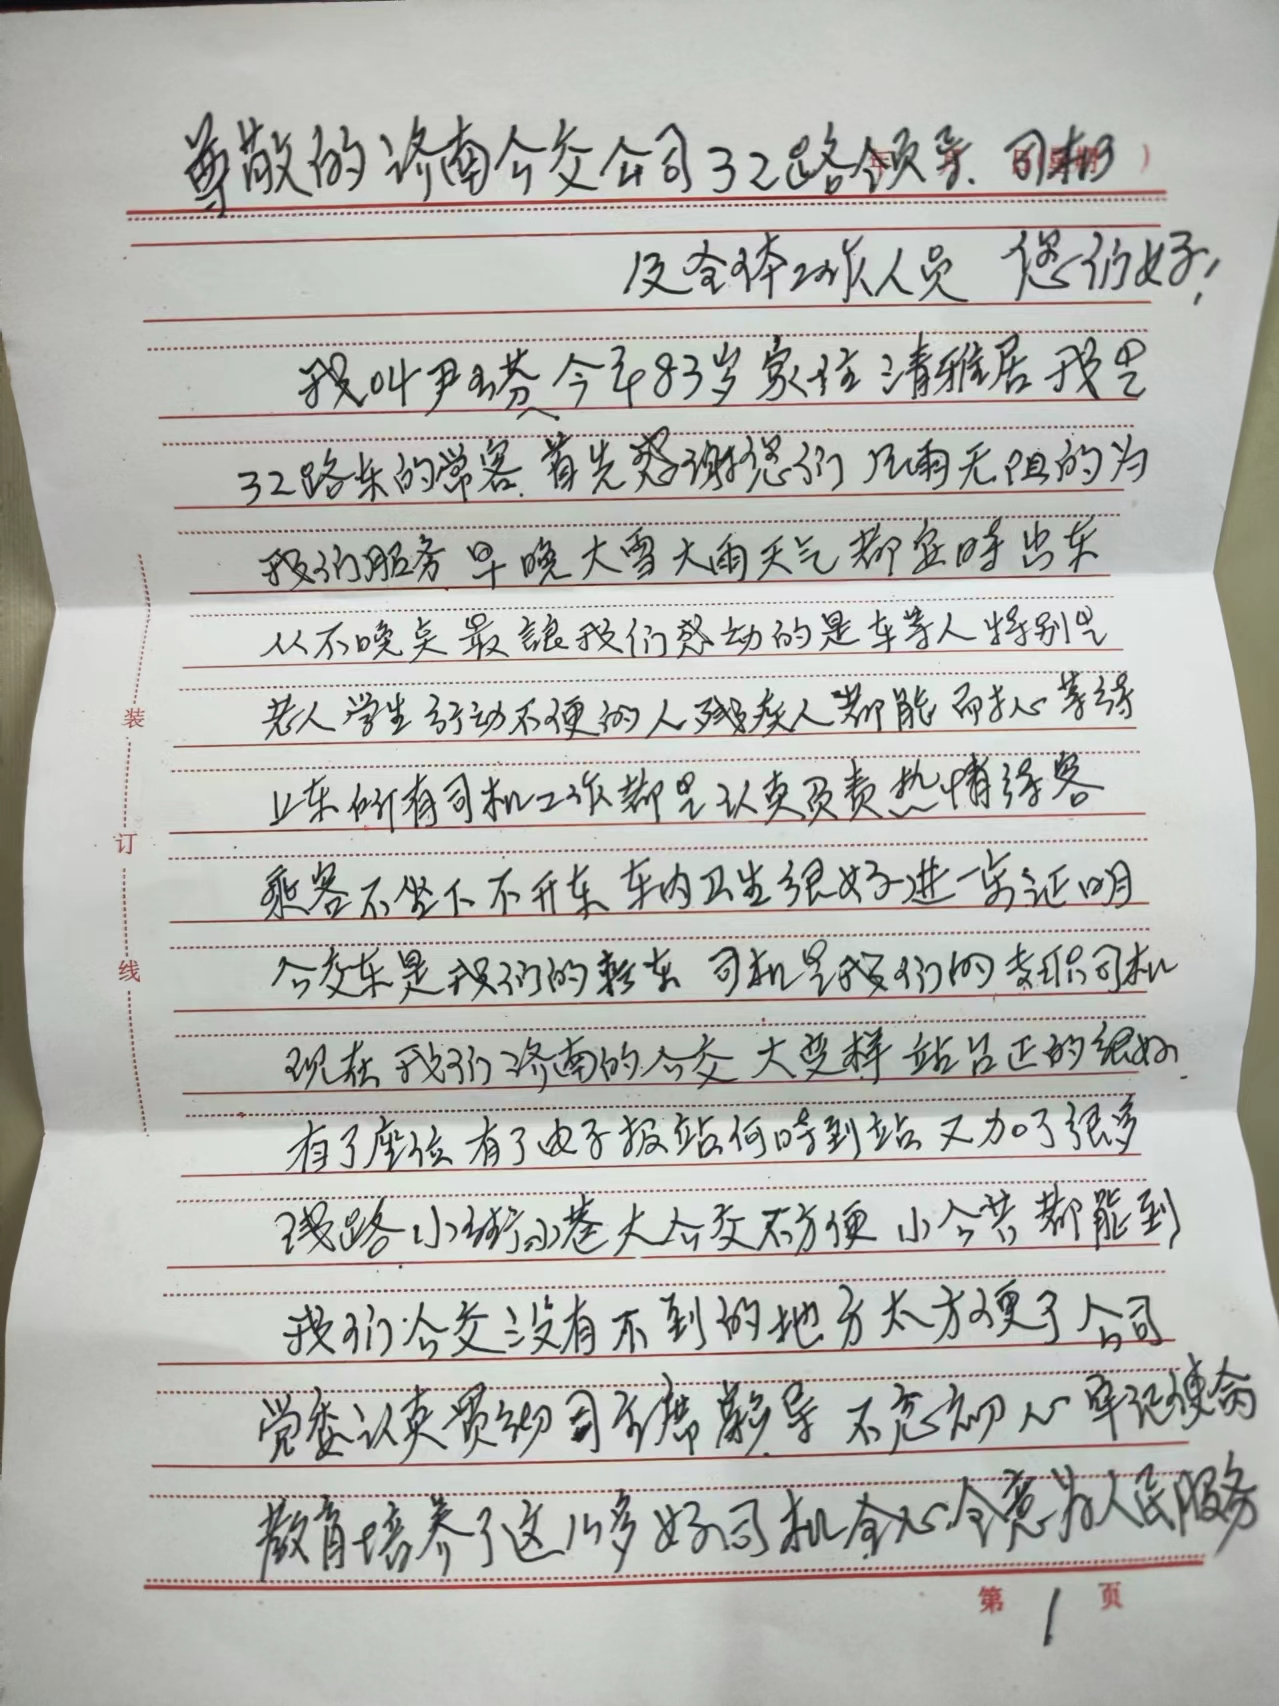 尊敬的济南公交公司32路领导、司机
及全体工作人员 您们好！
我叫尹玉芬今年83岁家住清雅居我是
32路车的常客.首先感谢您们风雨无阻的为
我们服务早晚大雪大雨天气都定时出车
从不晚点最讓我们感动的是车等人特别是
老人学生行动不便的人残疾人都能耐心等待
上车所有司机工作都是认真负责热情待客
乘客不坐下不开车车内卫生很好进一步证明
公交车是我们的轿车司机是我们的专职司机
现在我们济南的公交大变样站台正的很好.
有了座位有了电子报站何时到站又加了很多
线路小街小巷大公交不方便小公共都能到
我们公交没有不到的地方太方便了公司
党委认真贯彻司主席领导不忘初心牢记使命
教育培养了这么多好司机全心全意为人民服务
装
订
线
第 1 页